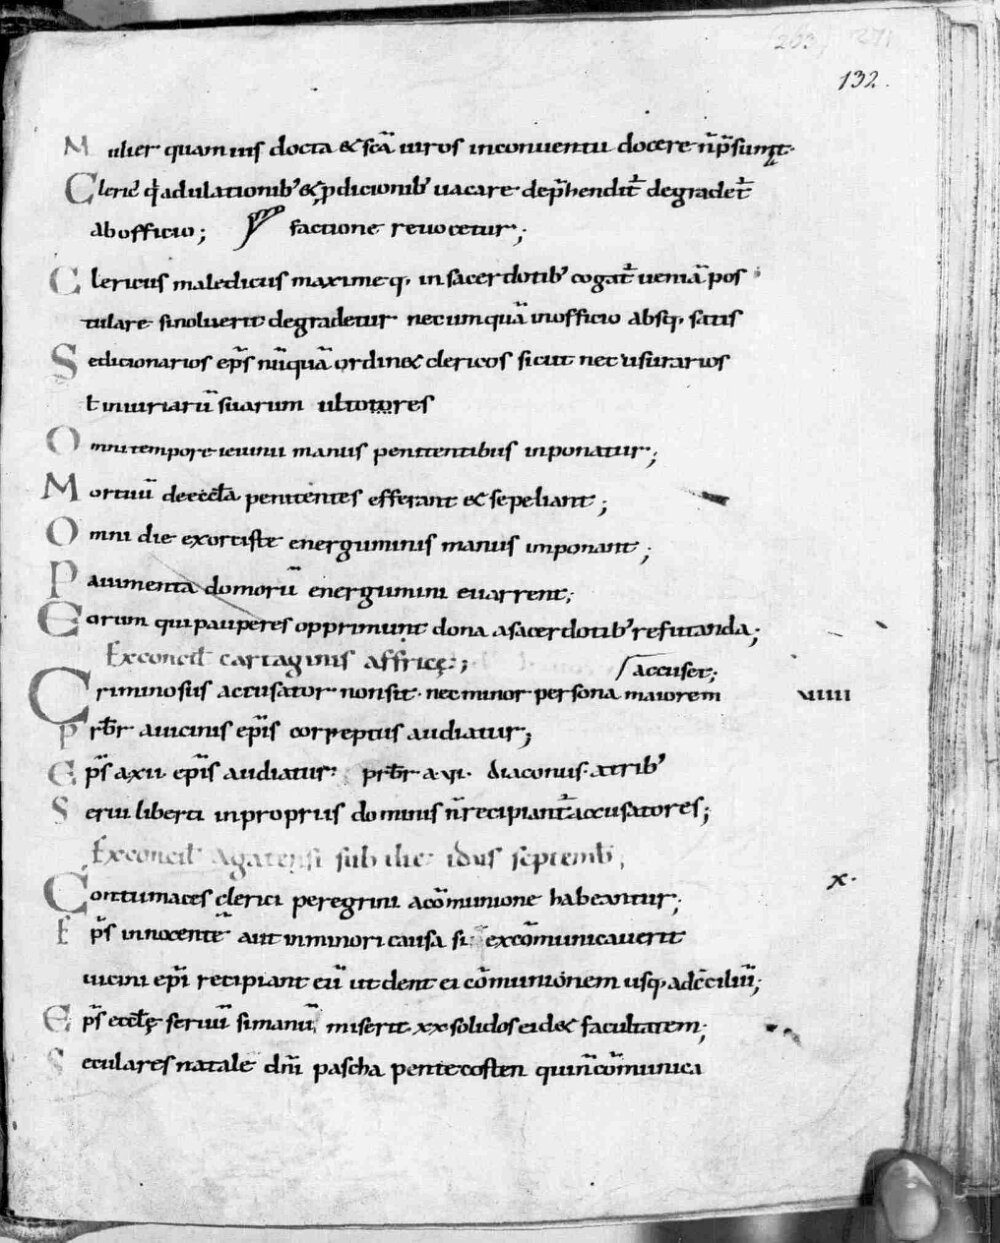 132.
Mulier quamuis docta & scā uiros inconuentu docere n̄ p̄sumat.
Cleric' q̇ adulationib' & p̱dicionib' uacare dep̄hendit̄ degradet̄
ab officio; factione reuocetur;
Clericus maledicus maxime q; in sacerdotib' cogat̄ ueniā pos
tulare si noluerit degradetur nec umquā inofficio absq; satis
Sedicionarios ep̄s nūquā ordin& clericos sicut nec usurarios
ł iniuriarū suarum ultotores
Omni tempore ieiunii manus penitentibus inponatur;
Mortuū de eccl̄a penitentes efferant & sepeliant;
Omni die exorcistę energuminis manus imponant;
Pauimenta domorū energumini euarrent;
Eorum qui pauperes opprimunt dona a sacerdotib' refutanda;
Ex concil̄ cartaginis affricę;
accuset;
Criminosus accusator non sit. nec minor persona maiorem
viiii
Prb̄r a uicinis ep̄is correptus audiatur;
Ep̄s a xii ep̄is audiatur. prb̄r a vi. diaconus a trib'
Serui liberti in propriis dominis n̄ recipiant̄ accusatores;
Ex concil̄ Agatensi sub die idus septemb̄;
x.
Contumaces clerici peregrini a cōmunione habeantur;
Ep̄s innocentē aut in minori causa si excōmunicauerit
uicini ep̄i recipiant eū ut dent ei cōmunionem usq; ad c̄ciliū;
Ep̄s eccl̄ę seruū si manū miserit xx solidos ei d& facultatem;
Seculares natale dn̄i pascha pentecosten qui n̄ cōmunica